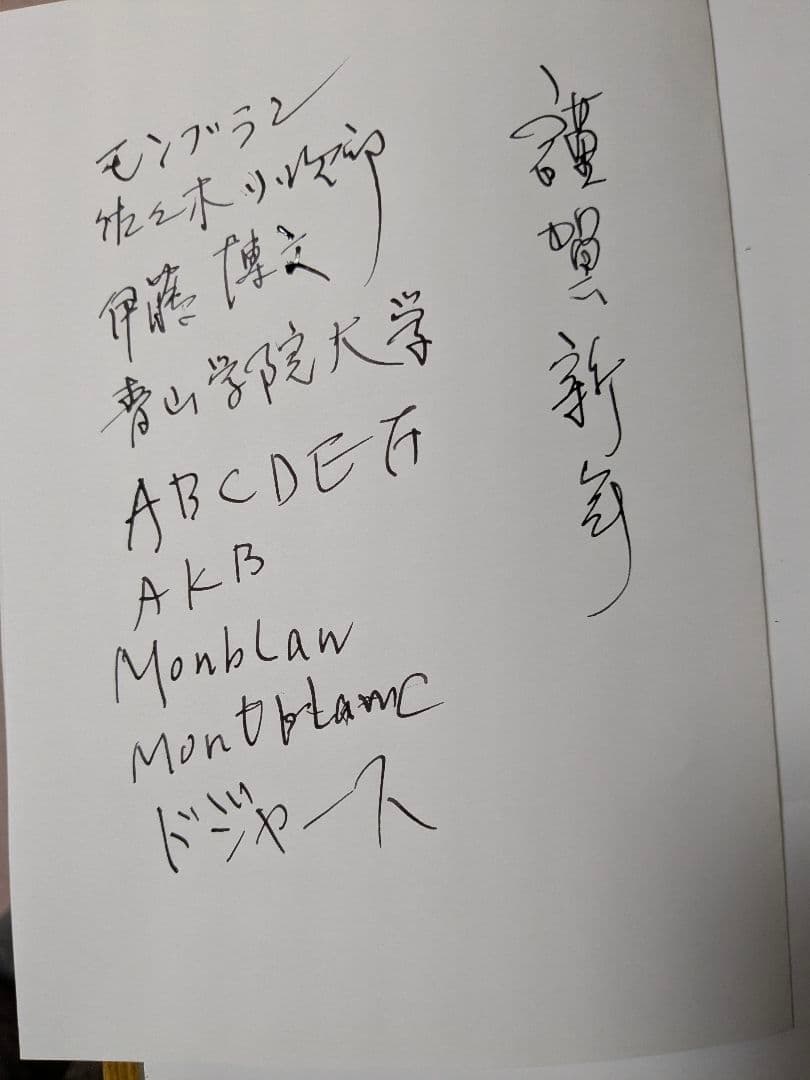 モンブラン
佐々木小次郎
伊藤博文
青山学院大学
ABCDEF
AKB
Monblan
Montblanc
ドジャース
謹賀新年